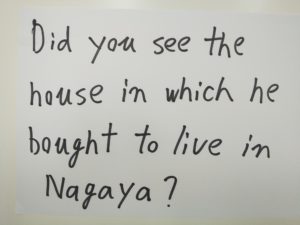 Did you see the
house in which he
bought to live in
Nagaya?